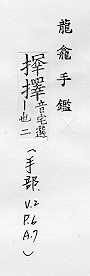 龍龕手鑑
擇
音宅選
—也二
(手部 V.2 P.6 A.7)